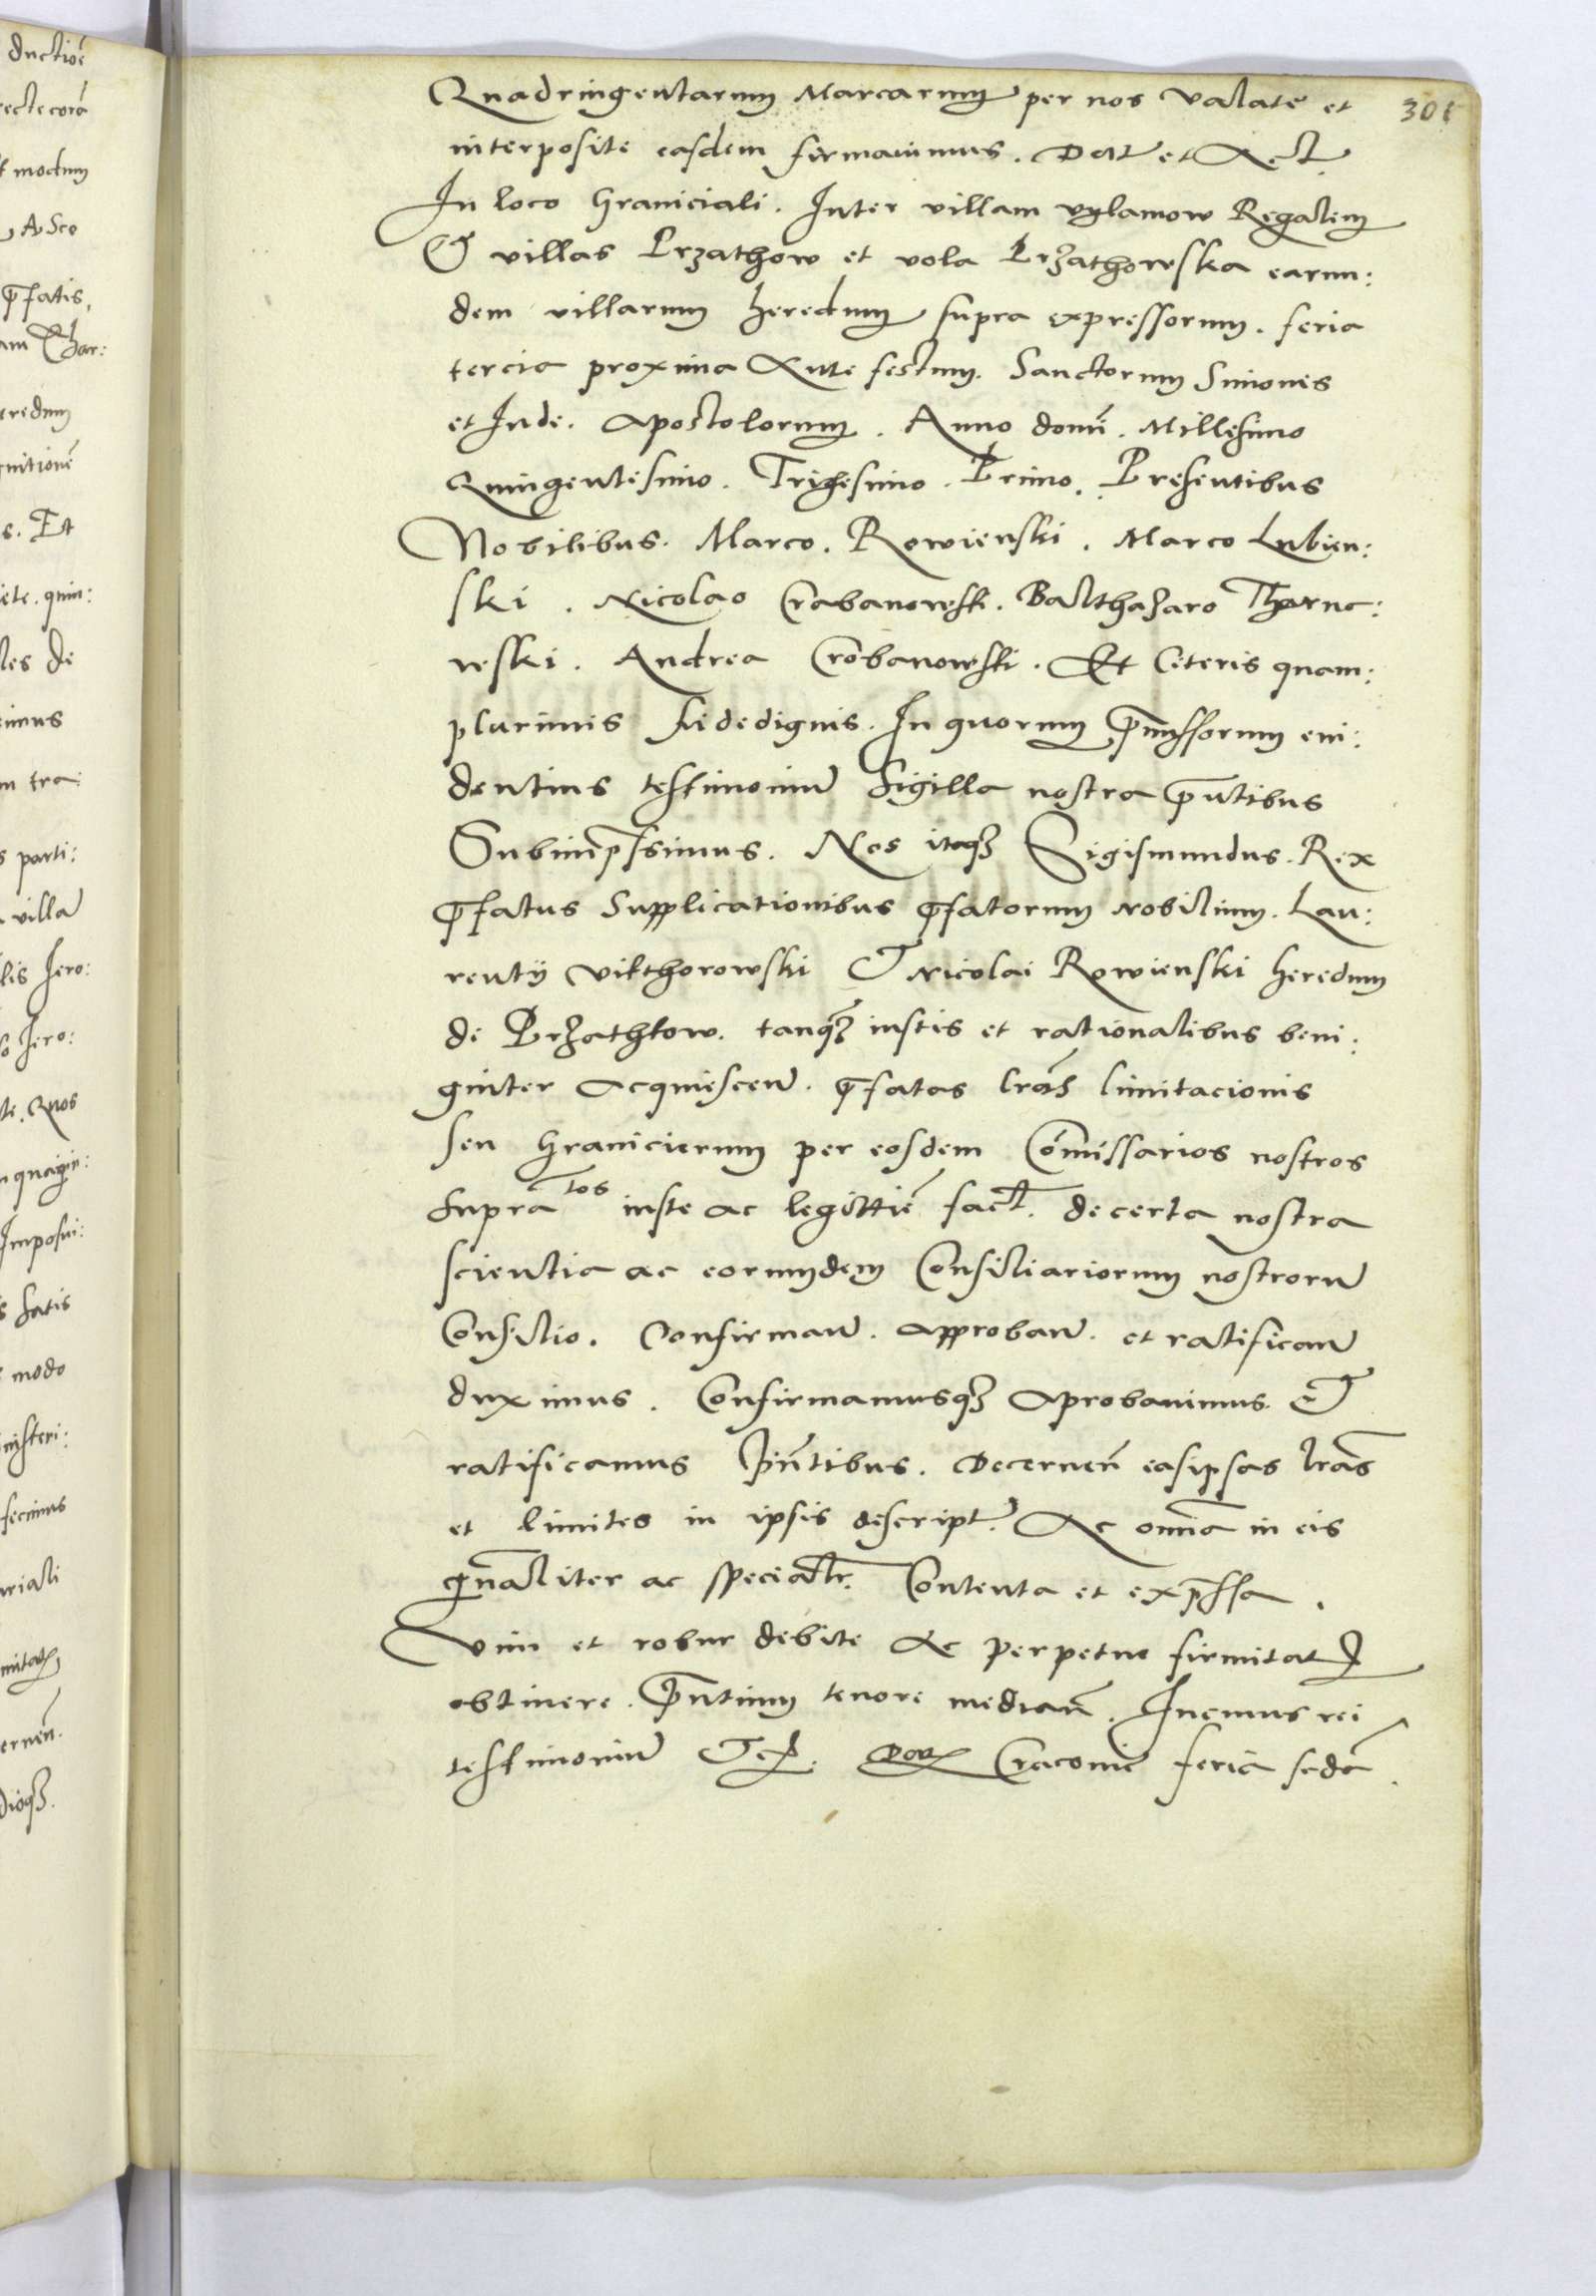 301
Quadringentarum Marcarum per nos valate et
interposite easdem firmauimus. Dat et Act.
In loco Graniciali. Inter villam vglamow Regalem
Et villas Przathow et vola Przathowska earun:
dem villarum heredum supra expressorum. feria
tercia proxima Ante festum. Sanctorum Simonis
et Jude. Apostolorum. Anno domĩ. Millesimo
Quingentesimo. Trigesimo. Primo. Presentibus
Nobilibus. Marco. Rowienski. Marco Lubien:
ski. Nicolao Crabanowski. Balthazaro Tharno:
wski. Andrea Crobanowski. Et Ceteris quam:
plurimis fidedignis. In quorum p̃missorum eui:
dentius testimoniũ Sigilla nostra p̃ntibus
Subimp̃ssimus. Nos itaqʒ Sigismundus. Rex
p̃fatus Supplicationibus p̃fatorum Nobilium. Lau:
rentÿ vikthorowski Et Nicolai Rowienski heredum
de Przathkow. tanqʒ iustis et rationalibus beni:
gniter Acquiescen̄. p̃fatas lrãs limitacionis
seu Granicierum per eosdem Com̃issarios nostros
suprãtos iuste ac legittiẽ fact. de certa nostra
scientia ac eorumdem Consiliariorum nostrorũ
Consilio. Confirman̄. Approban̄. et ratifican̄
duximus. Confirmamusqʒ Aprobauimus. Et
ratificamus p̃ñtibus. Decernen̄ easipsas lrãs
et limites in ipsis descript. Ac om̃ia in eis
gñaliter ac specialtr. Contenta et exp̃ssa.
Vim et robur debite Ac perpetue firmitatꝭ
obtinere. p̃ntium tenore median̄. In cuius rei
testimoniũ Etc. Datꝭ Cracouie feria sedã.